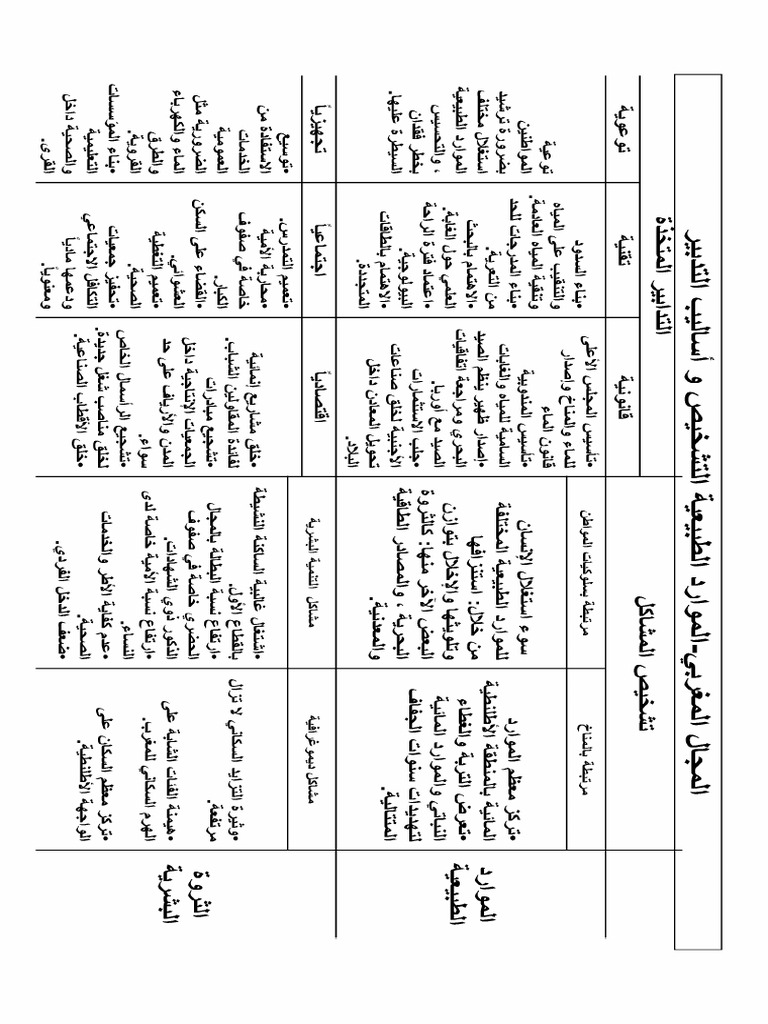 المجال المغربي-الموارد الطبيعية التشخيص و أساليب التدبير
تشخيص المشاكل
التدابير المتخذة
مرتبطة بالمناخ
مرتبطة بسلوكيات المواطن
قانونية
تقنية
توعوية
الموارد
الطبيعية
•تركز معظم الموارد
المائية بالمنطقة الأطلنطية
•تعرض التربة والغطاء
النباتي والموارد المائية
لتهديدات سنوات الجفاف
المتتالية.
سوء استغلال الإنسان
للموارد الطبيعية المختلفة
من خلال: استنزافها
وتلويثها والإخلال بتوازن
البعض الآخر منها: كالثروة
البحرية ، والمصادر الطاقية
والمعدنية.
•تأسيس المجلس الأعلى
للماء والمناخ وإصدار
قانون الماء
•تأسيس المندوبية
السامية للمياه والغابات
•إصدار ظهير ينظم الصيد
البحري ومراجعة اتفاقيات
الصيد مع أوربا.
•جلب الاستثمارات
الأجنبية لخلق صناعات
تحويل المعادن داخل
البلاد.
•بناء السدود
والتنقيب على المياه
وتنقية المياه العادمة.
•بناء المدرجات للحد
من التعرية.
•الاهتمام بالبحث
العلمي حول الغابة.
•اعتماد فترة الراحة
البيولوجية.
•الاهتمام بالطاقات
المتجددة.
توعية
المواطنين
بضرورة ترشيد
استغلال مختلف
الموارد الطبيعية
، والتحسيس
بخطر فقدان
السيطرة عليها.
مشاكل ديموغرافية
مشاكل التنمية البشرية
اقتصادياً
اجتماعياً
تجهيزياً
الثروة
البشرية
•وتيرة التزايد السكاني لا تزال
مرتفعة.
•هيمنة الفئات الشابة على
الهرم السكاني للمغرب.
•تركز معظم السكان على
الواجهة الأطلنطية.
•اشتغال غالبية الساكنة النشيطة
بالقطاع الأول.
•ارتفاع نسبة البطالة بالمجال
الحضري خاصة في صفوف
الذكور ذوي الشهادات.
•ارتفاع نسبة الأمية خاصة لدى
النساء.
•عدم كفاية الأطر والخدمات
الصحية.
•ضعف الدخل الفردي.
•خلق مشاريع إنمائية
لفائدة المقاولين الشباب.
•تشجيع مبادرات
الجمعيات الإنتاجية داخل
المدن والأرياف على حد
سواء.
•تشجيع الرأسمال الخاص
لخلق مناصب شغل جديدة.
•خلق الأقطاب الصناعية.
•تعميم التمدرس.
•محاربة الأمية
خاصة في صفوف
الكبار.
•القضاء على السكن
العشوائي.
•تعميم التغطية
الصحية.
•تحفيز جمعيات
التكافل الاجتماعي
ودعمها مادياً
ومعنويا.
•توسيع
الاستفادة من
الخدمات
العمومية
الضرورية مثل
الماء والكهرباء
والطرق
القروية.
•بناء المؤسسات
التعليمية
والصحية داخل
القرى.